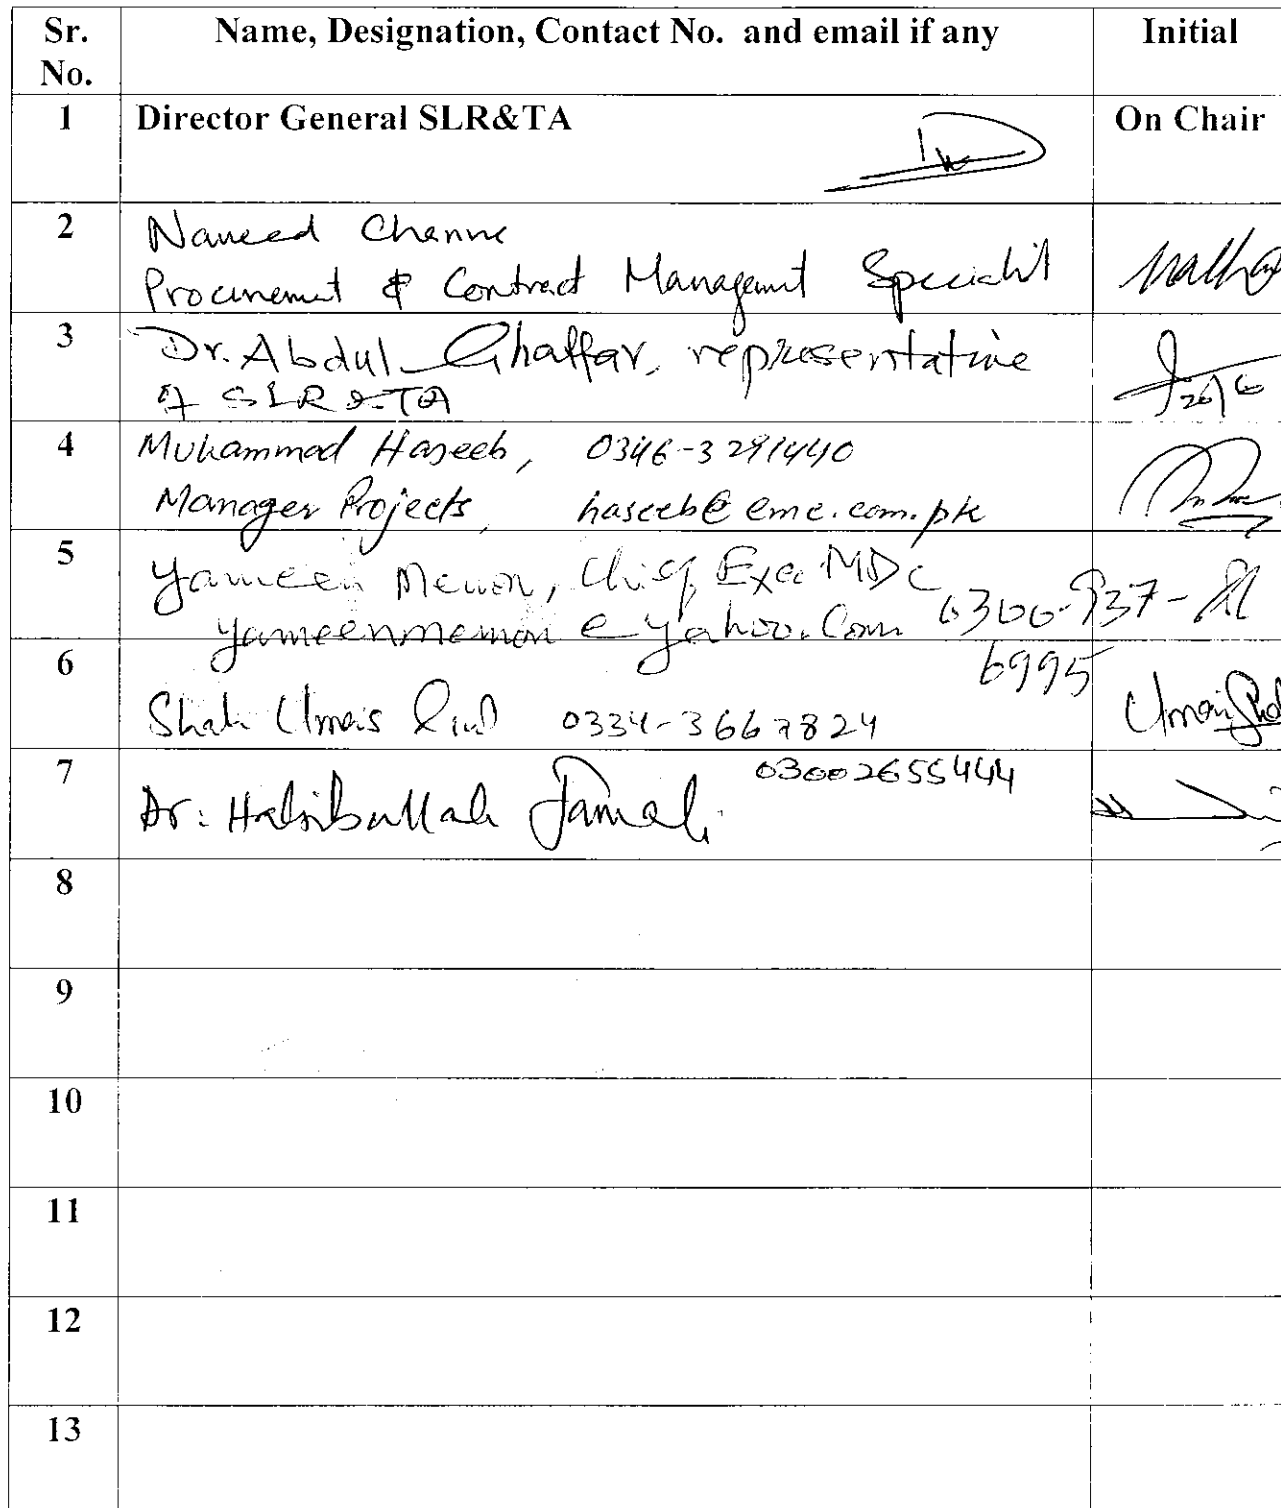 Sr. No.
Name, Designation, Contact No. and email if any
Initial
1
Director General SLR&TA
On Chair
2
Naveed Channe
Procurement & Contract Management Specialist
3
Dr. Abdul Ghaffar, representative
of SLR &TA
26/6
4
Muhammad Haseeb, 0346-3291440
Manager Projects, haseeb@eme.com.pk
5
Yameen Memon, Chief Exec MDC
yameenmemon@yahoo.com 0300-937-
6995
6
Shah Umais 0334-3667824
7
Dr: Habibullah Jamali 03002655444
8
9
10
11
12
13